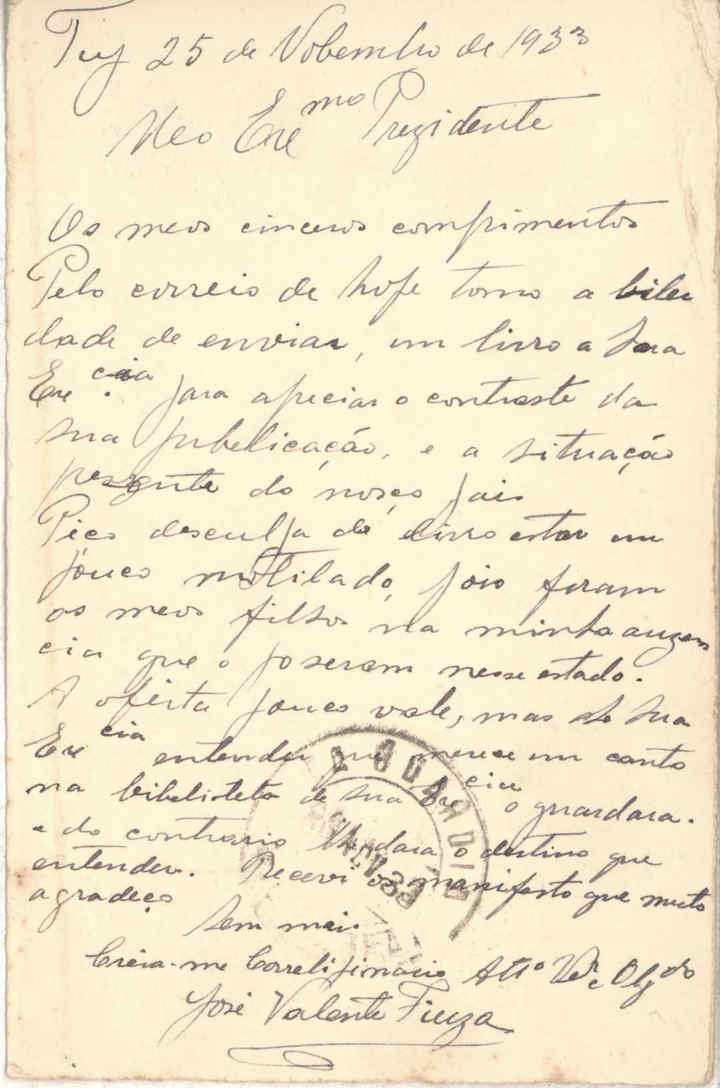 Tuy 25 de Nobembro de 1933
Meo Exe mo Prezidente
Os meos cinceros comprimentos
Pelo correio de hoje tomo a liber
dade de enviar, um livro a Sua
Exe cia para apreciar o contraste da
sua pubelicação, e a situação
prezente do noso pais
Peço desculpa do livro estar um
pouco motilado, pois foram
os meos filhos na minha auzen
cia que o poseram nesse estado.
A oferta pouco vale, mas se Sua
Exe cia entender que merece um canto
na bibelioteca de sua Exe cia o guardara.
e do contrario lhe dara o destino que
entender. Recevi o manifesto que muito
agradeço
Sem mais
Creia-me Correligionario Atto Ver e Obgdo
José Valente Fiuza
GUARDI
NOV 33